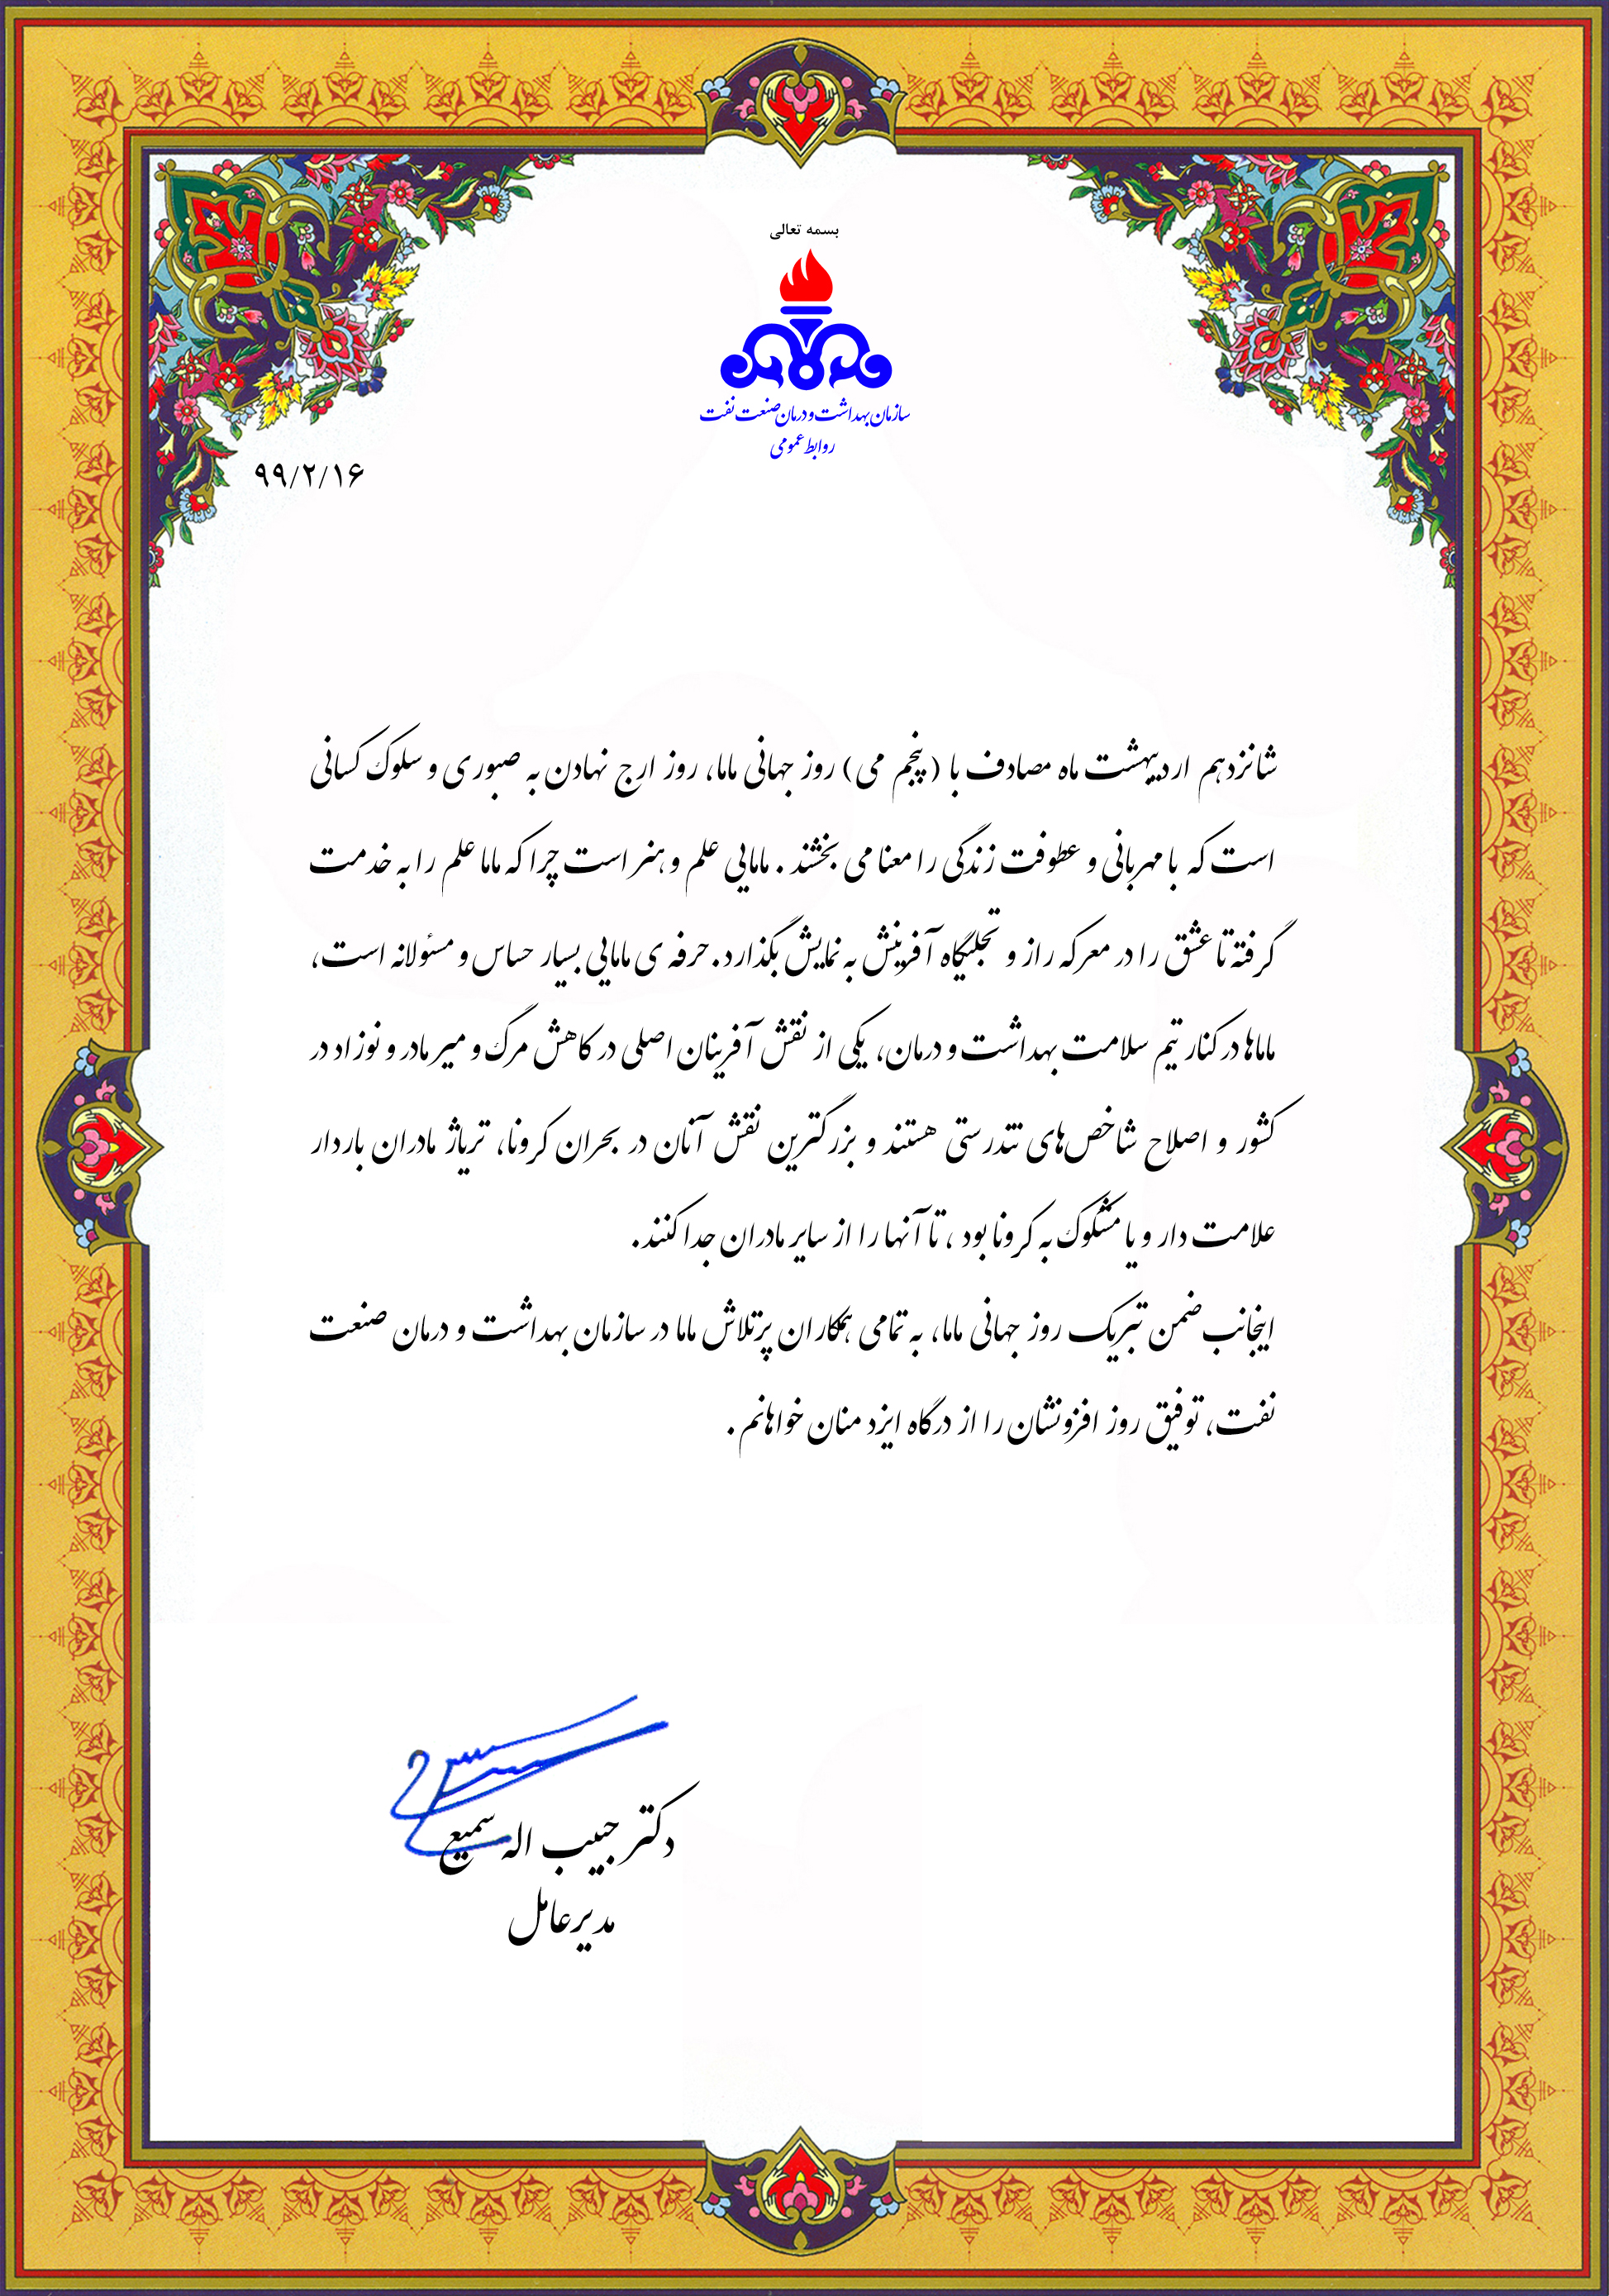 بسمه تعالی
سازمان بهداشت و درمان صنعت نفت
روابط عمومی
۹۹/۲/۱۶
شانزدهم اردیبهشت ماه مصادف با (پنجم می) روز جهانی ماما، روز ارج نهادن به صبوری و سلوک کسانی
است که با مهربانی و عطوفت زندگی را معنا می بخشند . مامایی علم و هنر است چرا که ماما علم را به خدمت
گرفته تا عشق را در معرکه راز و تجلیگاه آفرینش به نمایش بگذارد. حرفه ی مامایی بسیار حساس و مسئولانه است،
ماماها در کنار تیم سلامت بهداشت و درمان، یکی از نقش آفرینان اصلی در کاهش مرگ و میر مادر و نوزاد در
کشور و اصلاح شاخص‌های تندرستی هستند و بزرگترین نقش آنان در بحران کرونا، تریاژ مادران باردار
علامت دار و یا مشکوک به کرونا بود ، تا آنها را از سایر مادران جدا کنند.
اینجانب ضمن تبریک روز جهانی ماما، به تمامی همکاران پرتلاش ماما در سازمان بهداشت و درمان صنعت
نفت، توفیق روز افزونشان را از درگاه ایزد منان خواهانم .
دکتر حبیب اله سمیع
مدیرعامل